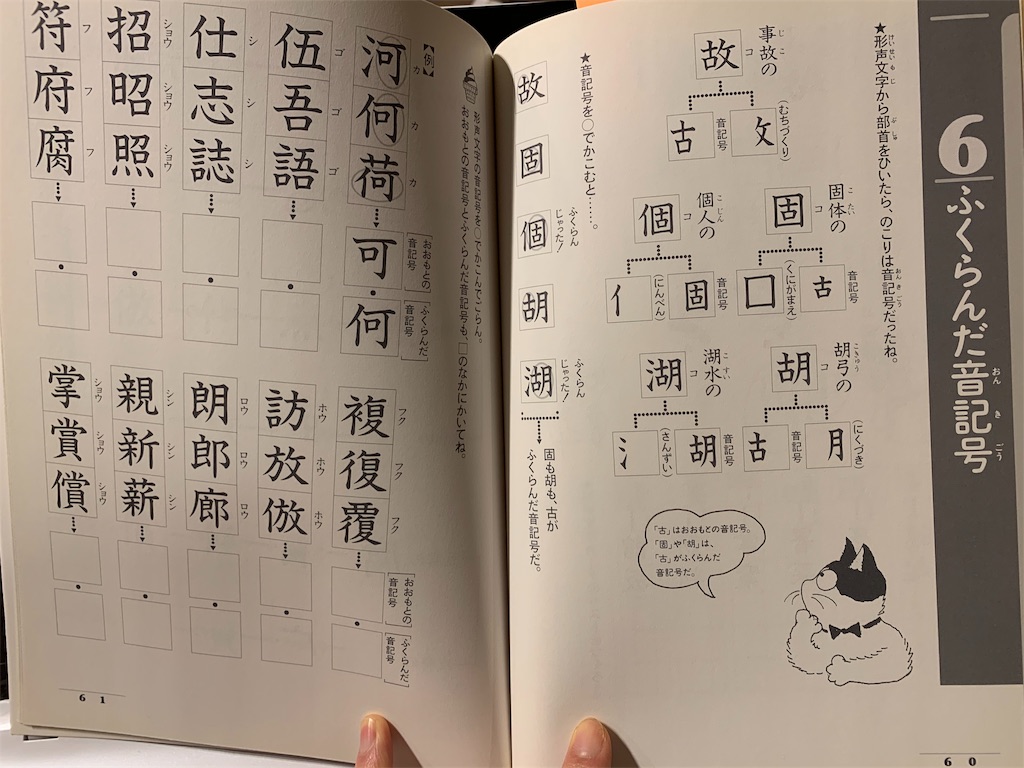 6 ふくらんだ音記号
おん き ごう
★形声文字から部首をひいたら、のこりは音記号だったね。
けいせいもじ ぶしゅ おんきごう
事故の
じこ
故 コ
古 音記号
攵 (むちづくり)
固体の
こたい
固 コ
古 音記号
囗 (くにがまえ)
個人の
こじん
個 コ
固 音記号
亻 (にんべん)
胡弓の
こきゅう
胡 コ
月 (にくづき)
古 音記号
湖水の
こすい
湖 コ
胡 音記号
氵 (さんずい)
「古」はおおもとの音記号。
「固」や「胡」は、
「古」がふくらんだ
音記号だ。
★音記号を○でかこむと……。
故
固
個 ふくらんじゃった!
胡
湖 ふくらんじゃった!
固も胡も、古が
ふくらんだ音記号だ。
60
形声文字の音記号を○でかこんでごらん。
おおもとの音記号とふくらんだ音記号も、□のなかにかいてね。
【例】
河 カ 何 カ 荷 カ 可・何
[おおもとの音記号] [ふくらんだ音記号]
伍 ゴ 吾 ゴ 語 ゴ
仕 シ 志 シ 誌 シ
招 ショウ 昭 ショウ 照 ショウ
符 フ 府 フ 腐 フ
複 フク 復 フク 覆 フク
[おおもとの音記号] [ふくらんだ音記号]
訪 ホウ 放 ホウ 倣 ホウ
朗 ロウ 郎 ロウ 廊 ロウ
親 シン 新 シン 薪 シン
掌 ショウ 賞 ショウ 償 ショウ
61